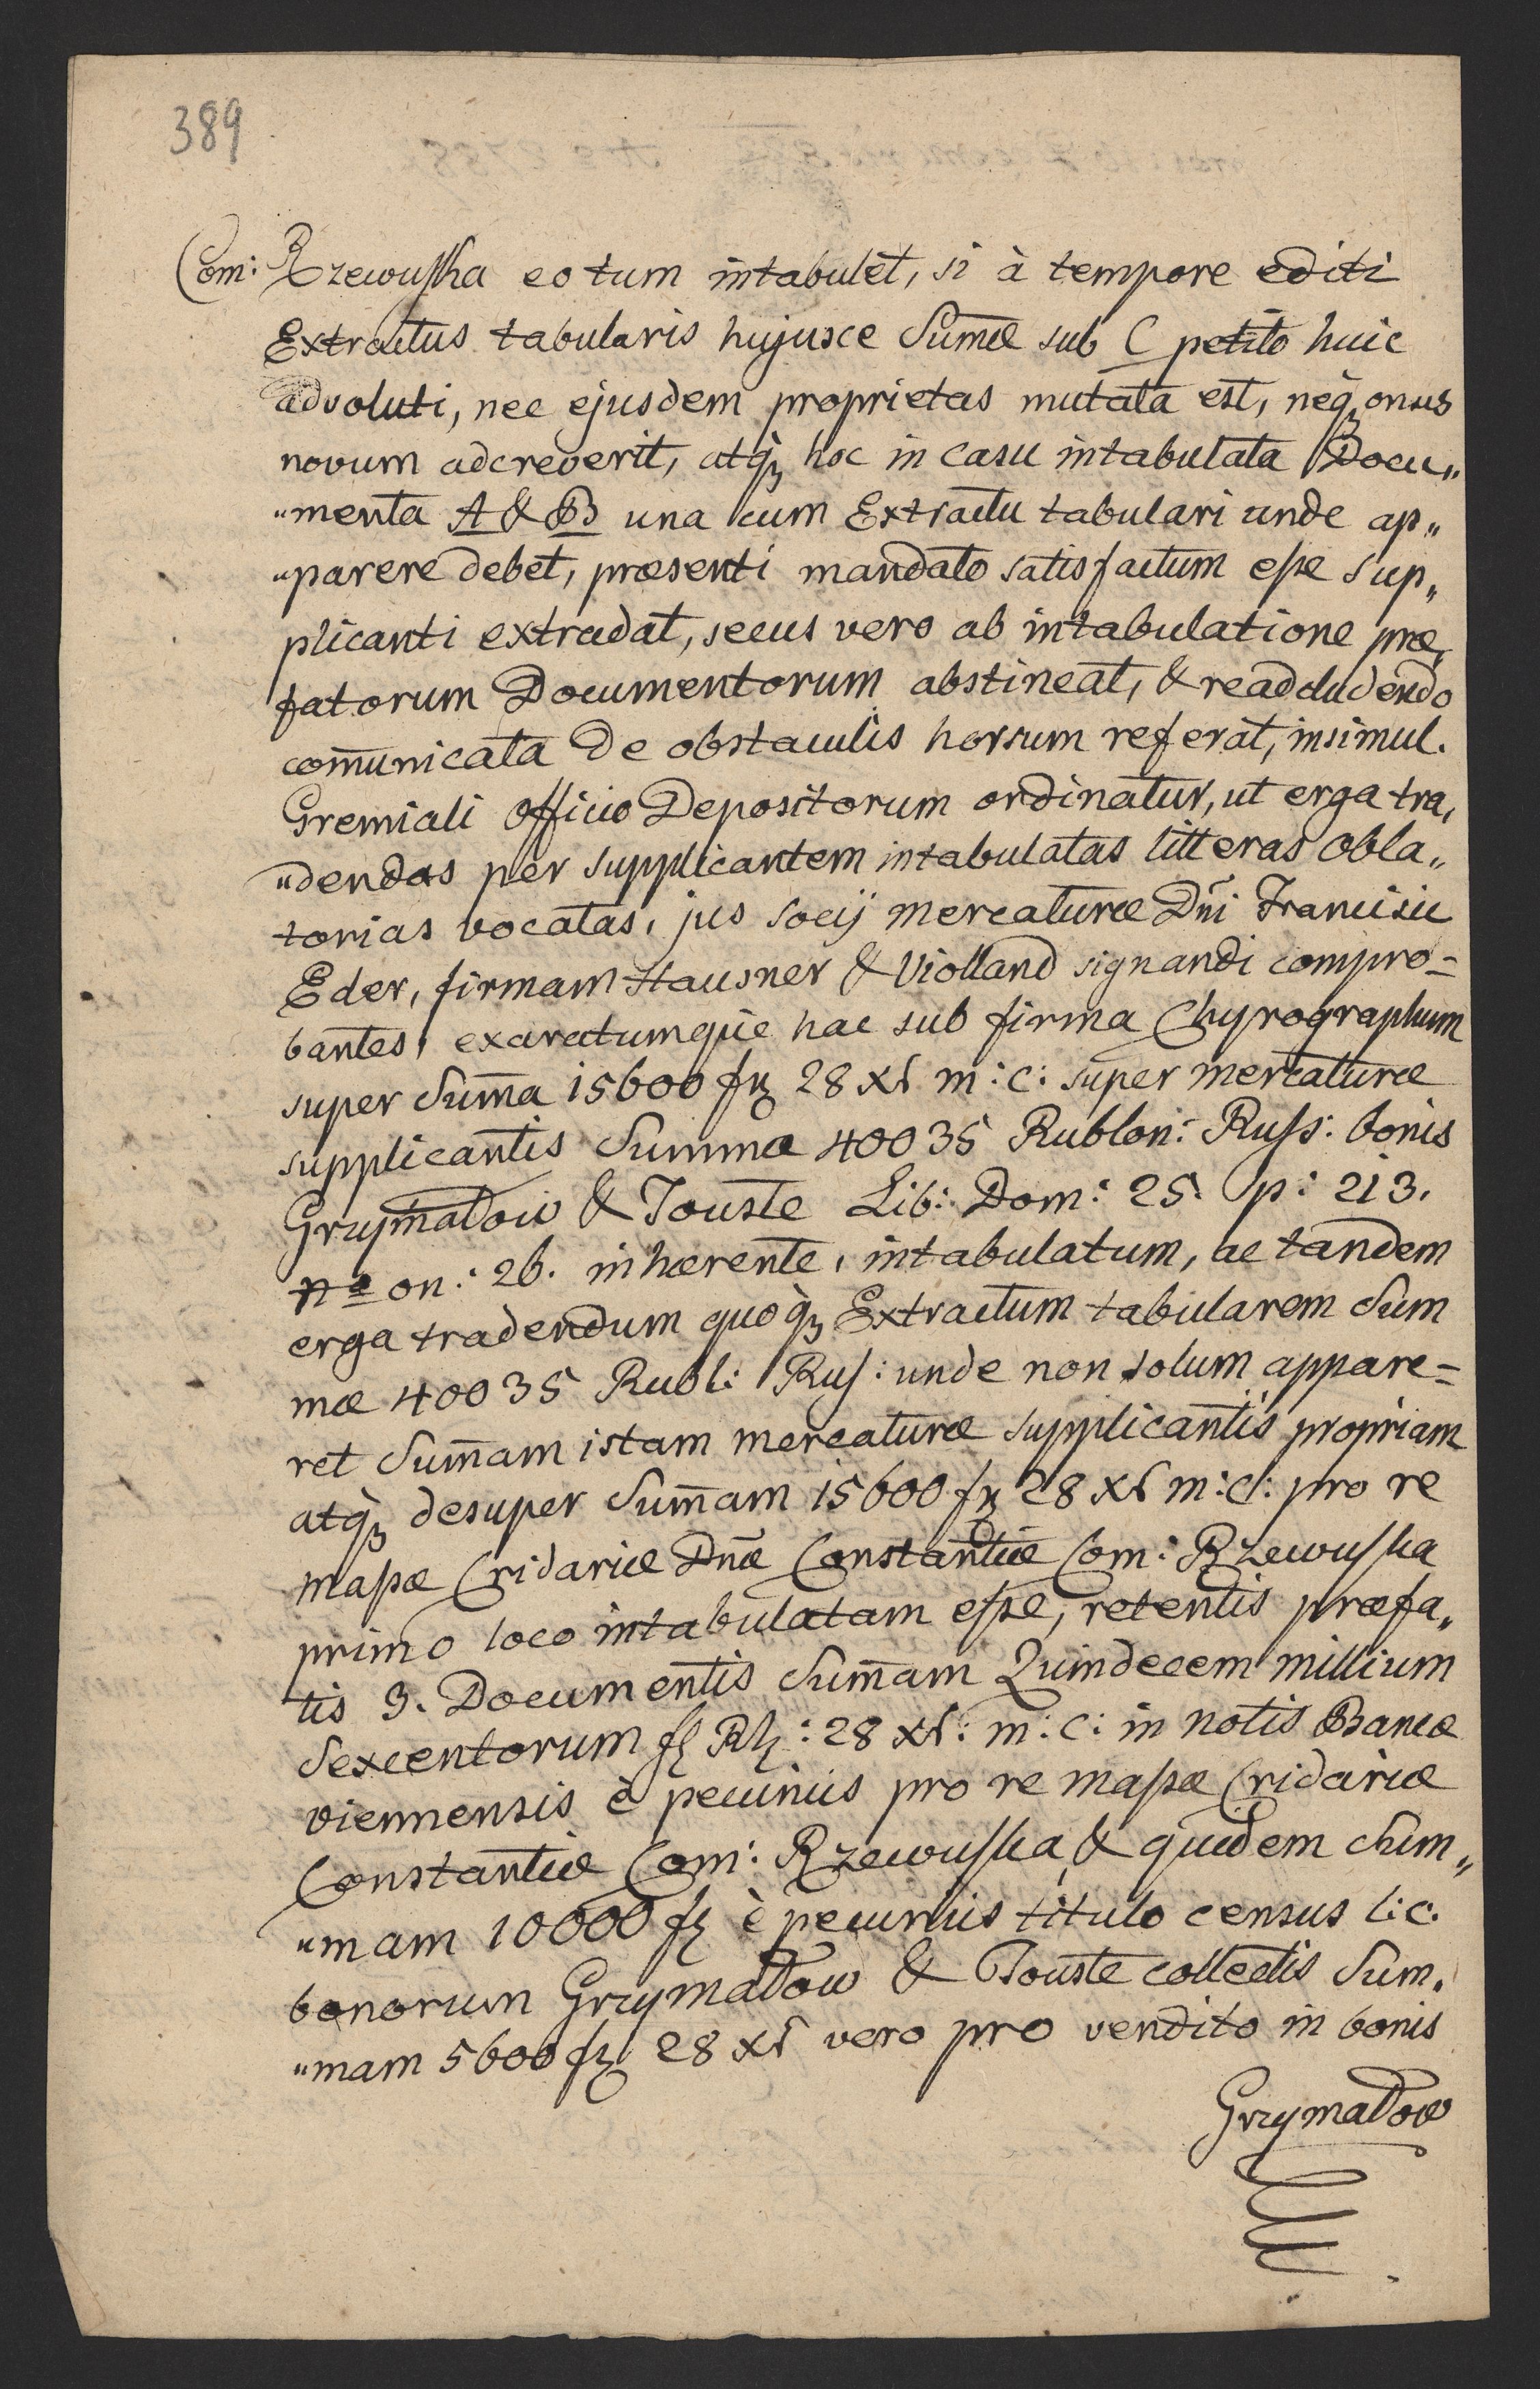 389
Com: Rzewuſka eotum intabulet, si à tempore editi
Extractus tabularis hujusce Sum̄æ sub C petito huic
advoluti, nec ejusdem proprietas mutata est, neq̄ onus
novum adcreverit, atq̄ hoc in casu intabulata Docu„
„menta A & B una cum Extractu tabulari unde ap„
„parere debet, præsenti mandato satisfactum eſse sup„
plicanti extradat, secus vero ab intabulatione præ„
fatorum Documentorum abstineat, & readcludendo
com̄unicata de obstaculis horsum referat, insimul.
Gremiali Officio Depositorum ordinatur, ut erga tra„
„dendas per supplicantem intabulatas litteras obla„
torias vocatas, jus Socij mercaturæ Dn̄i Francisci
Eder, firmam Hausner & Violland signandi compro=
bantes, exaratumque hac sub firma Chyrographum
super Sum̄a 15600 fr 28 Xr m: c: super mercaturæ
supplicantis Summa 40035 Rublon: Ruſs: bonis
Grzymałow & Touste Lib: Dom: 25. p: 213.
nº on: 26. inhærente, intabulatum, ac tandem
erga tradendum quoq̄ Extractum tabularem Sum
mæ 40035 Rubl: Ruſ: unde non solum appare=
ret Sum̄am istam mercaturæ supplicantis propriam
atq̄ desuper Sum̄am 15600 fr 28 Xr m: c: pro re
maſsæ Cridariæ Dnæ Constantiæ Com: Rzewuſka
primo loco intabulatam eſse, retentis præfa„
tis 3. Documentis Sum̄am Quindecem millium
Sexcentorum fl Rh: 28 Xr: m: c: in notis Bancæ
viennensis è pecuniis pro re maſsæ Cridariæ
Constantiæ Com: Rzewuſka & quidem Sum„
„mam 10000 fr è pecuniis titulo census l: c.
bonorum Grzymałow & Touste collectis Sum„
„mam 5600 fr 28 Xr vero pro vendito in bonis
Grzymałow